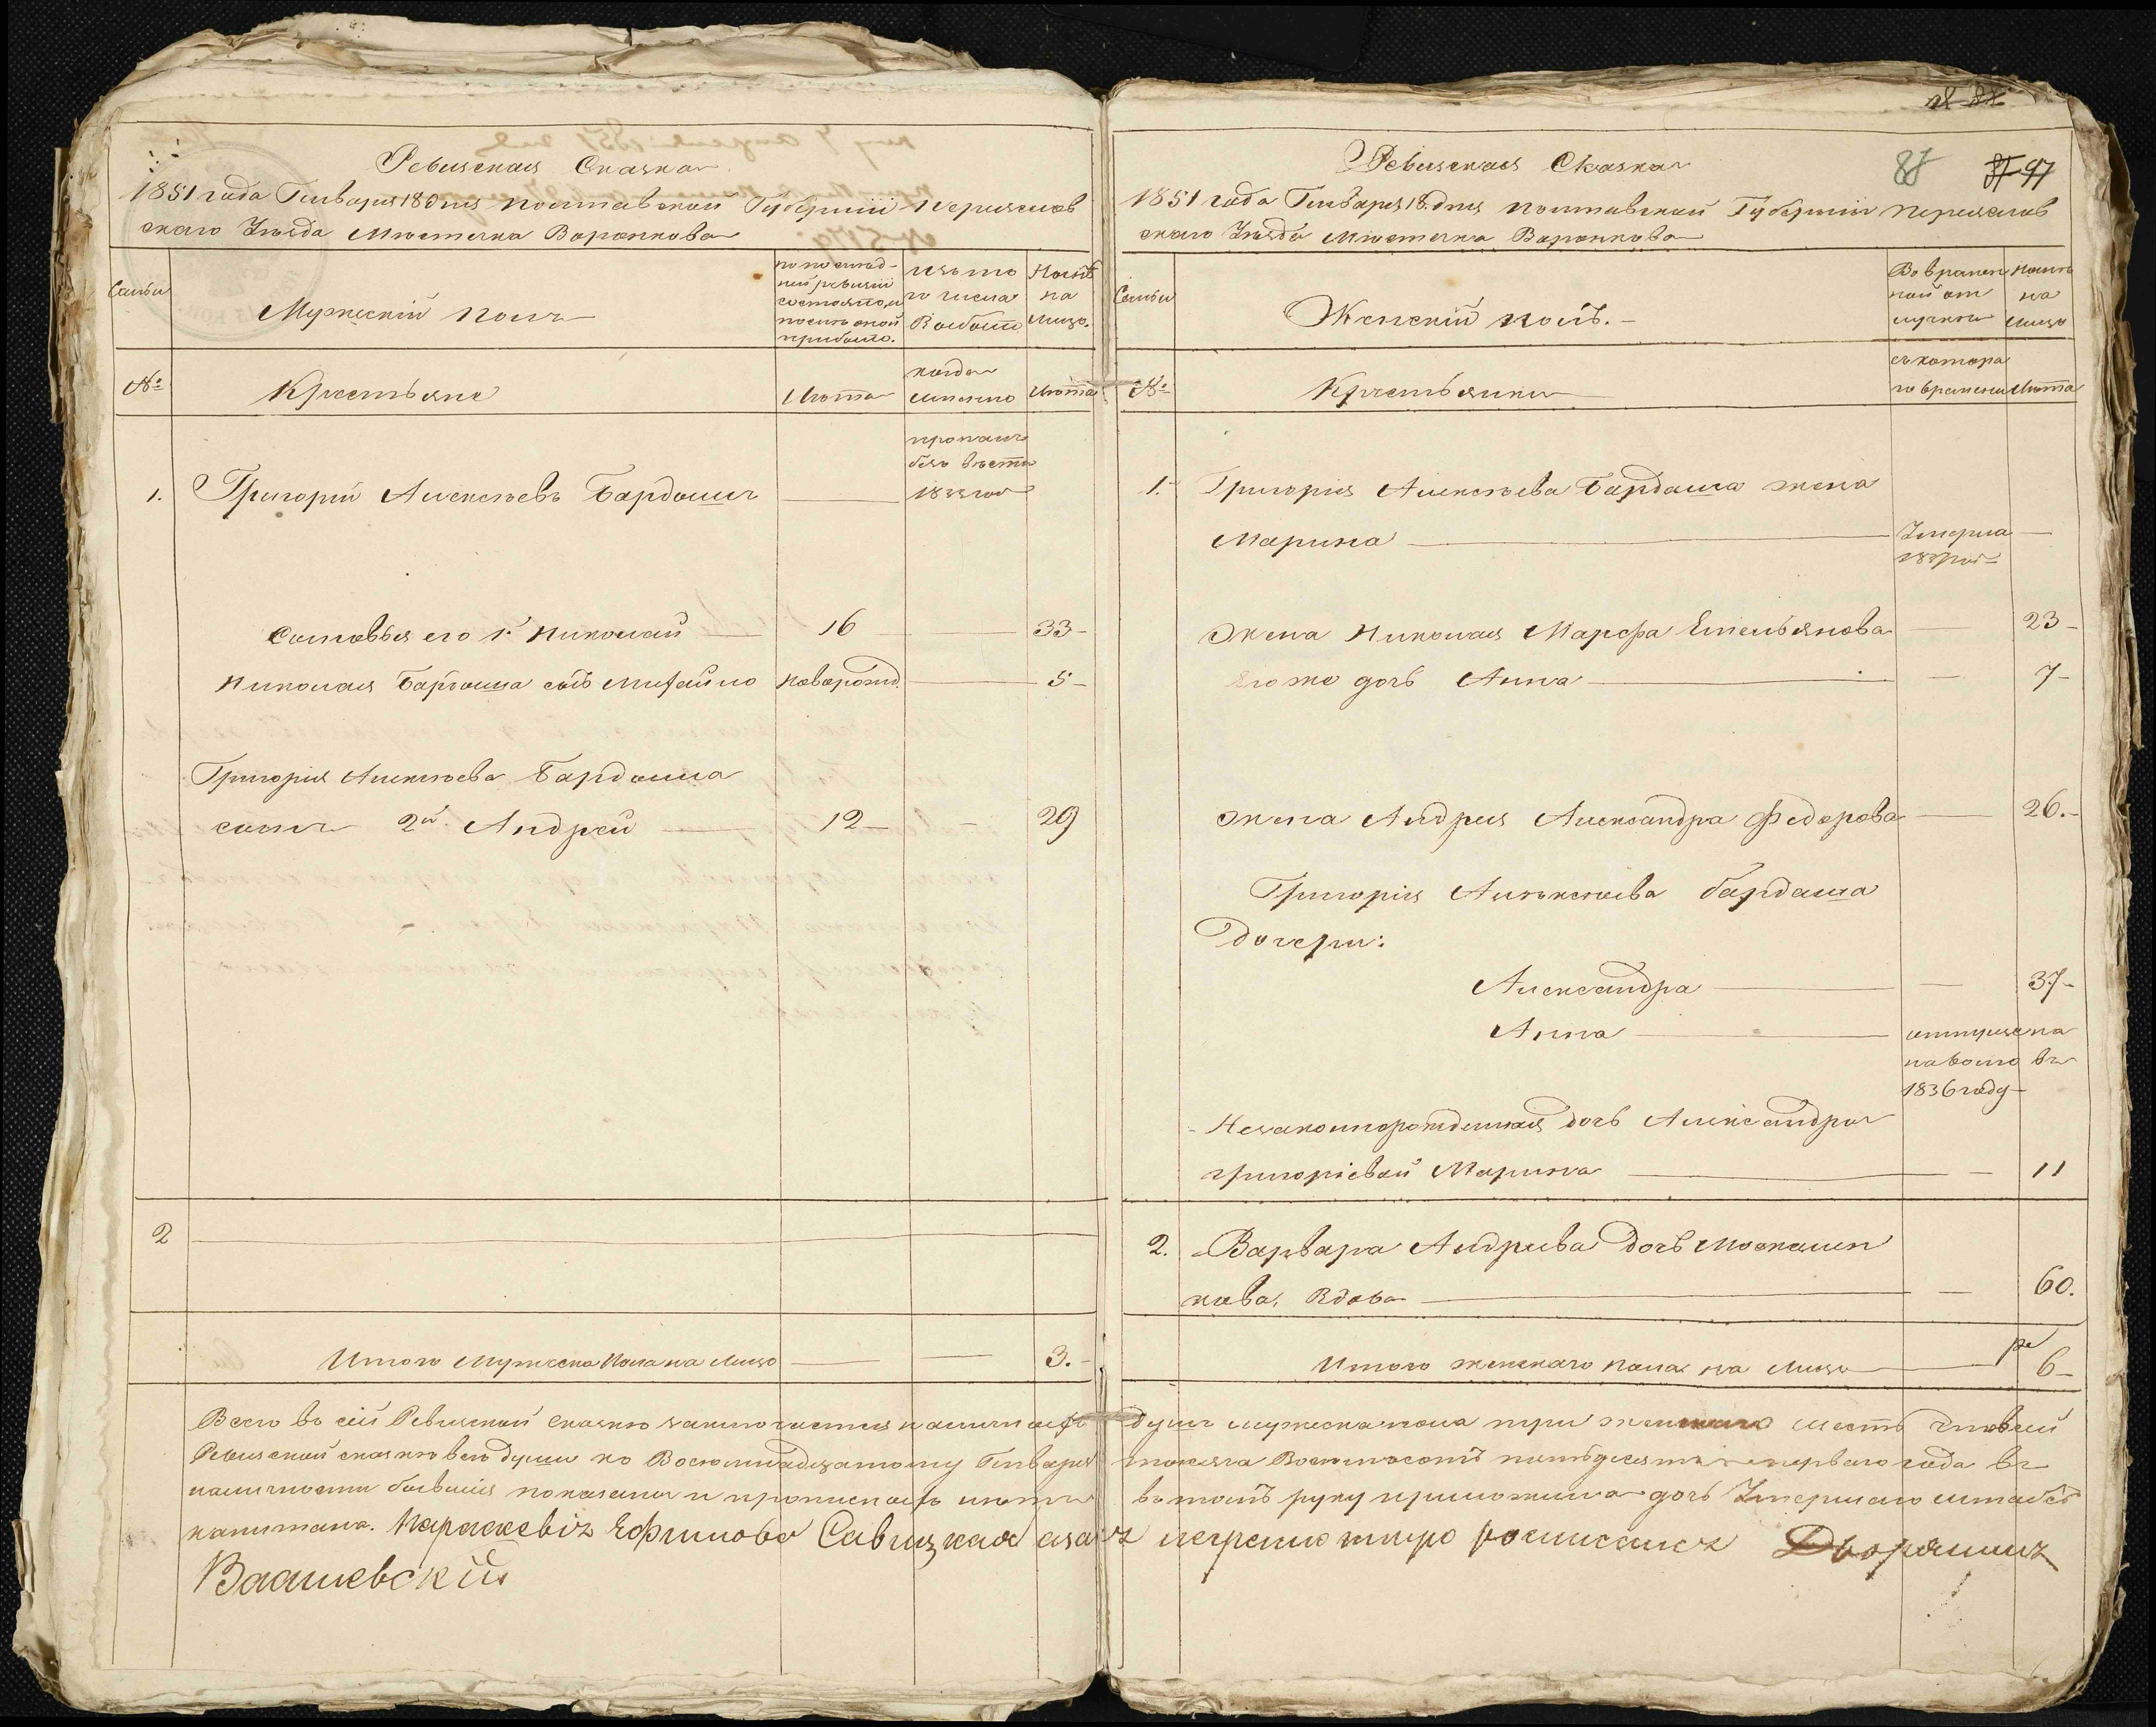 Ревизская Сказка
1851 года Генваря 18 дня Полтавской Губернии Переяслав
скаго Уезда Местечка Воронкова
Семьи
Мужескій полъ
по послед-
ней ревизіи
состояло, и
после оной
прибыло.
изъ то
го числа
Выбыло
Ныне
на
лицо.
№
Крестьяне
Лета
когда
именно
Лета
1.
Григорій Алексеевъ Бардашъ
пропалъ
безъ вести
Сыновья его 1й Николай 16 33
Николая Бардаша сынъ Михайло новорожд. 5
Григорія Алексеева Бардаша
сынъ 2й Андрей 12 29
2
Итого мужеска пола на лицо 3.
Ревизская Сказка
87 97
1851 года Генваря 18 дня Полтавской Губерніи Переяслав
скаго Уезда Местечка Воронкова
Семьи
Женскій полъ.
Во времен
ной от
лучки
Ныне
на
лицо
№
Крестьянки
съ котора
го времени
Лета
1. Григорія Алексеева Бардаша жена
Марина Умерла
Жена Николая Марфа Емельянова 23
Его же дочь Анна 7
Жена Андрея Александра Федорова 26.
Григорія Алексеева Бардаша
дочери:
Александра 37
Анна отпущена
на волю въ
1836 году
Незаконнорожденная дочь Александры
Григоріевой Марина 11
2. Варвара Андреева дочь Москален
кова, Вдова 60.
Итого женскаго пола на лицо 6
Всего въ сей Ревизской сказке заключается наличныхъ душъ мужеска пола три женскаго шесть
Ревизской сказке все души по Восемнадцатому Генваря тысяча Восемьсотъ пятьдесятъ перваго года въ
наличности бывшія показаны и прописныхъ нетъ въ томъ руку приложила дочь Умершаго штабсъ
капитана. Параскевія Ефимова Савицкая а за неграмотную росписался Дворянинъ